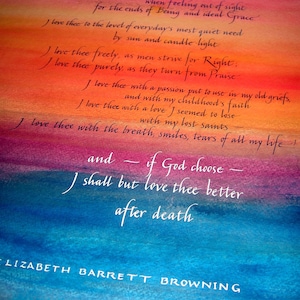 when feeling out of sight
for the ends of Being and ideal Grace.
I love thee to the level of everyday's most quiet need
by sun and candle light.
I love thee freely, as men strive for Right.
I love thee purely, as they turn from Praise.
I love thee with a passion put to use in my old griefs,
and with my childhood's faith
I love thee with a love I seemed to lose
with my lost saints
I love thee with the breath, smiles, tears of all my life
and — if God choose —
I shall but love thee better
after death
ELIZABETH BARRETT BROWNING